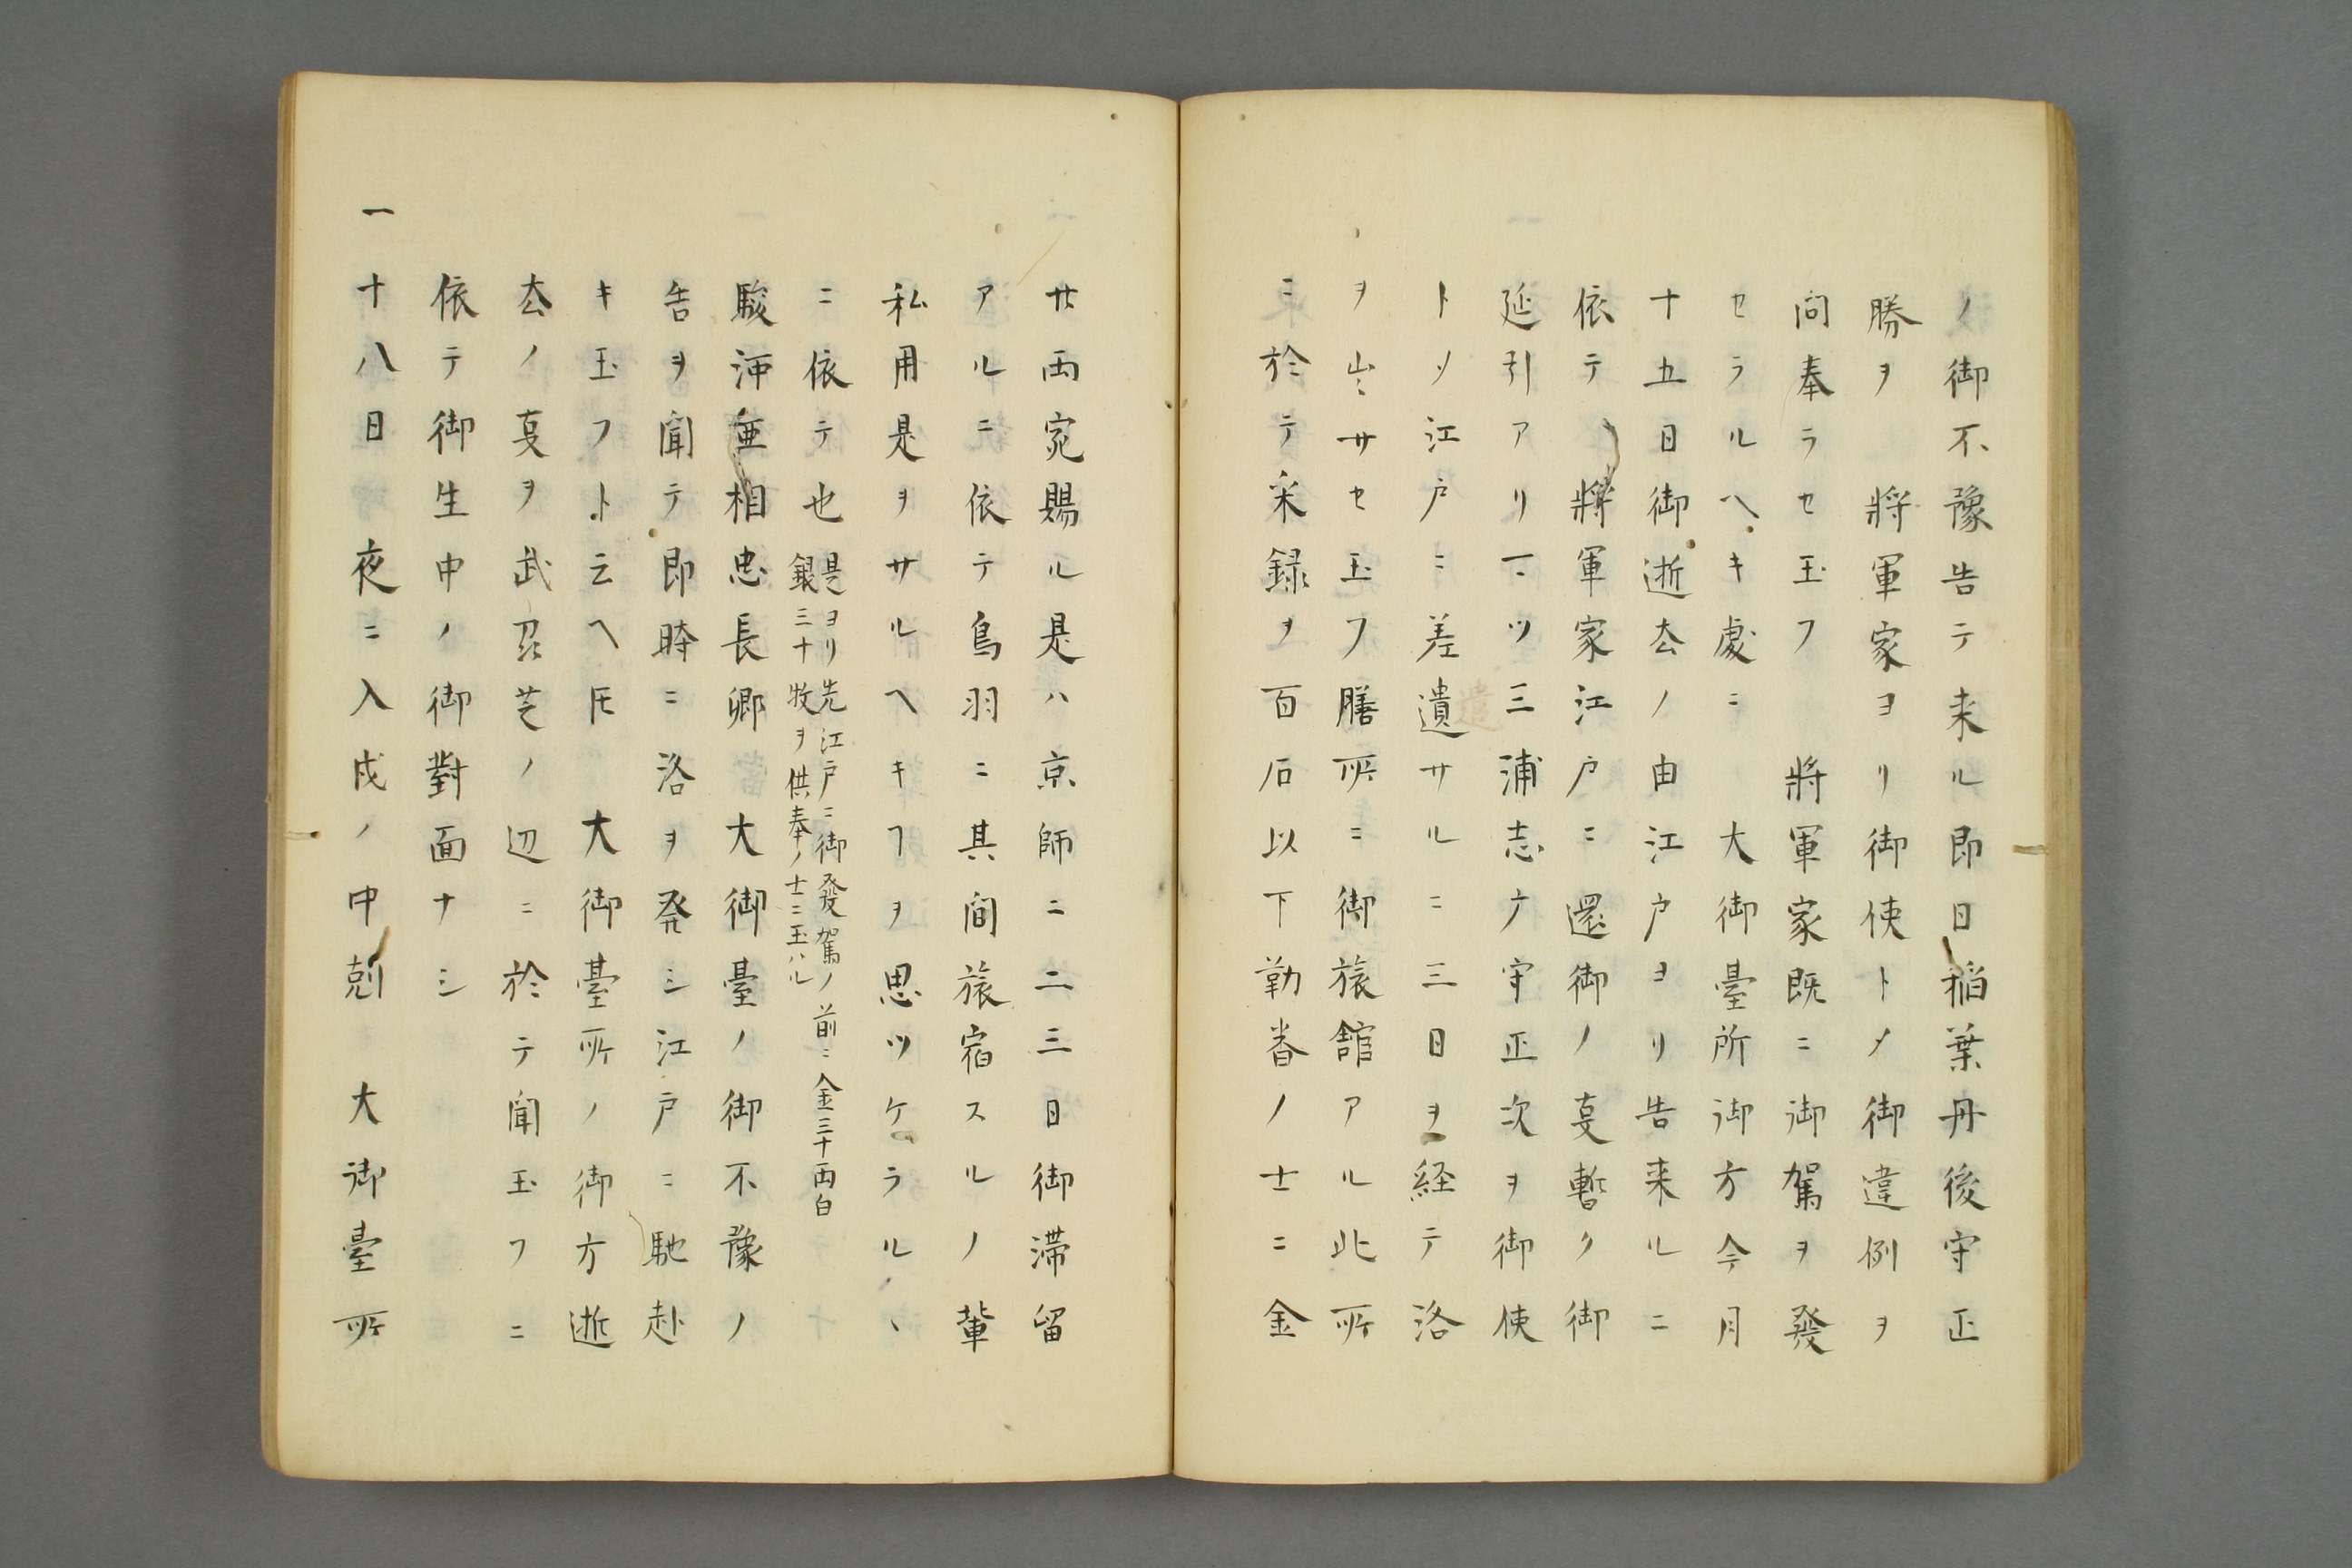 ノ御不豫告テ来ル即日稲葉丹後守正
勝ヲ　將軍家ヨリ御使トメ御違例ヲ
問奉ラセ玉フ　將軍家既ニ御駕ヲ發
セラルヘキ處ニ　大御臺所御方今月
十五日御逝去ノ由江戸ヨリ告来ルニ
依テ　將軍家江戸ニ還御ノ叓暫ク御
延引アリ一ツ三浦志广守正次ヲ御使
トメ江戸ニ差遺サルニ三日ヲ経テ洛
ヲ出サセ玉フ膳所ニ御旅舘アル此所
ニ於テ采録ヲ百石以下勤番ノ士ニ金
廿両宛賜ル是ハ京師ニ二三日御滞留
アルニ依テ鳥羽ニ其間旅宿スルノ輩
私用是ヲサルヘキヿヲ思ツケラルヽ
ニ依テ也
是ヨリ先江戸ニ御發駕ノ前ニ金三十両白
銀三十牧ヲ供奉ノ士ニ玉ハル
駿河亜相忠長卿　大御臺ノ御不豫ノ
告ヲ聞テ即時ニ洛ヲ発シ江戸ニ馳赴
キ玉フト云ヘ𪜈　大御臺所ノ御方逝
去ノ叓ヲ武刕芝ノ辺ニ於テ聞玉フニ
依テ御生中ノ御對面ナシ
一十八日　夜ニ入戌ノ中剋　大御臺所